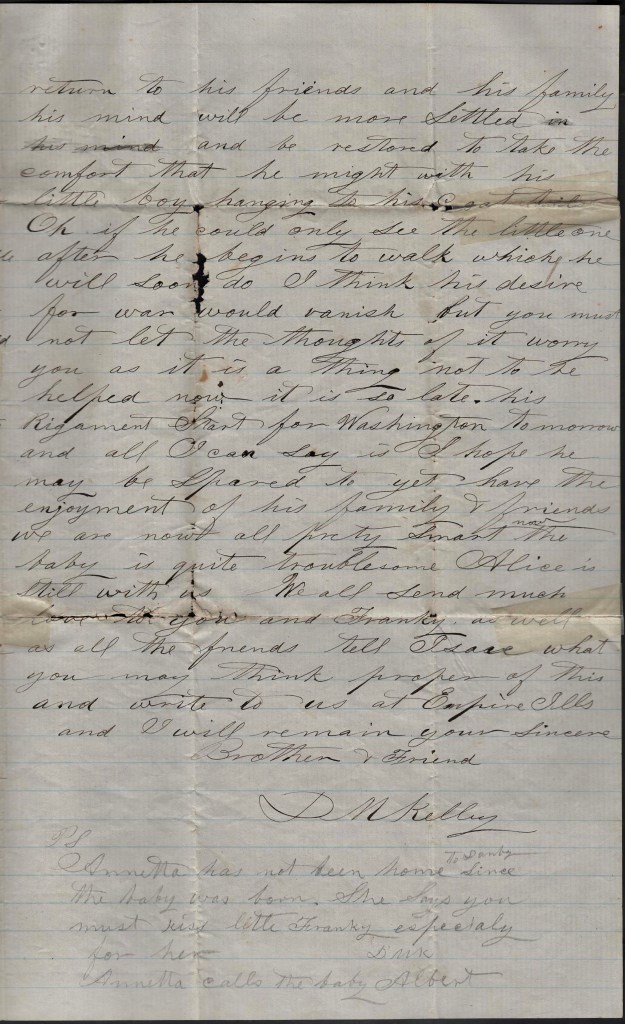 return to his friends and his family
his mind will be more Settled in
his mind and be restored to take the
comfort that he might with his
little boy hanging to his coat
Oh if he could only see the little one
after he begins to walk which he
will soon do I think his desire
for war would vanish but you must
not let the thoughts of it worry
you as it is a thing not to be
helped now it is so late. his
Rigament Start for Washington tomorrow
and all I can say is I hope he
may be Spared to yet have the
enjoyment of his family & friends
we are now all prety Smart now the
baby is quite troublesome Alice is
still with us We all send much
love to you and Franky. as well
as all the friends tell Isaac what
you may think proper of this
and write to us at Empire Ills
and I will remain your Sincere
Brother & Friend
D M Kelley
PS
Annetta has not been home To Danby Since
the baby was born. She Says you
must kiss little Franky especialy
for her DMK
Annetta calls the baby Albert